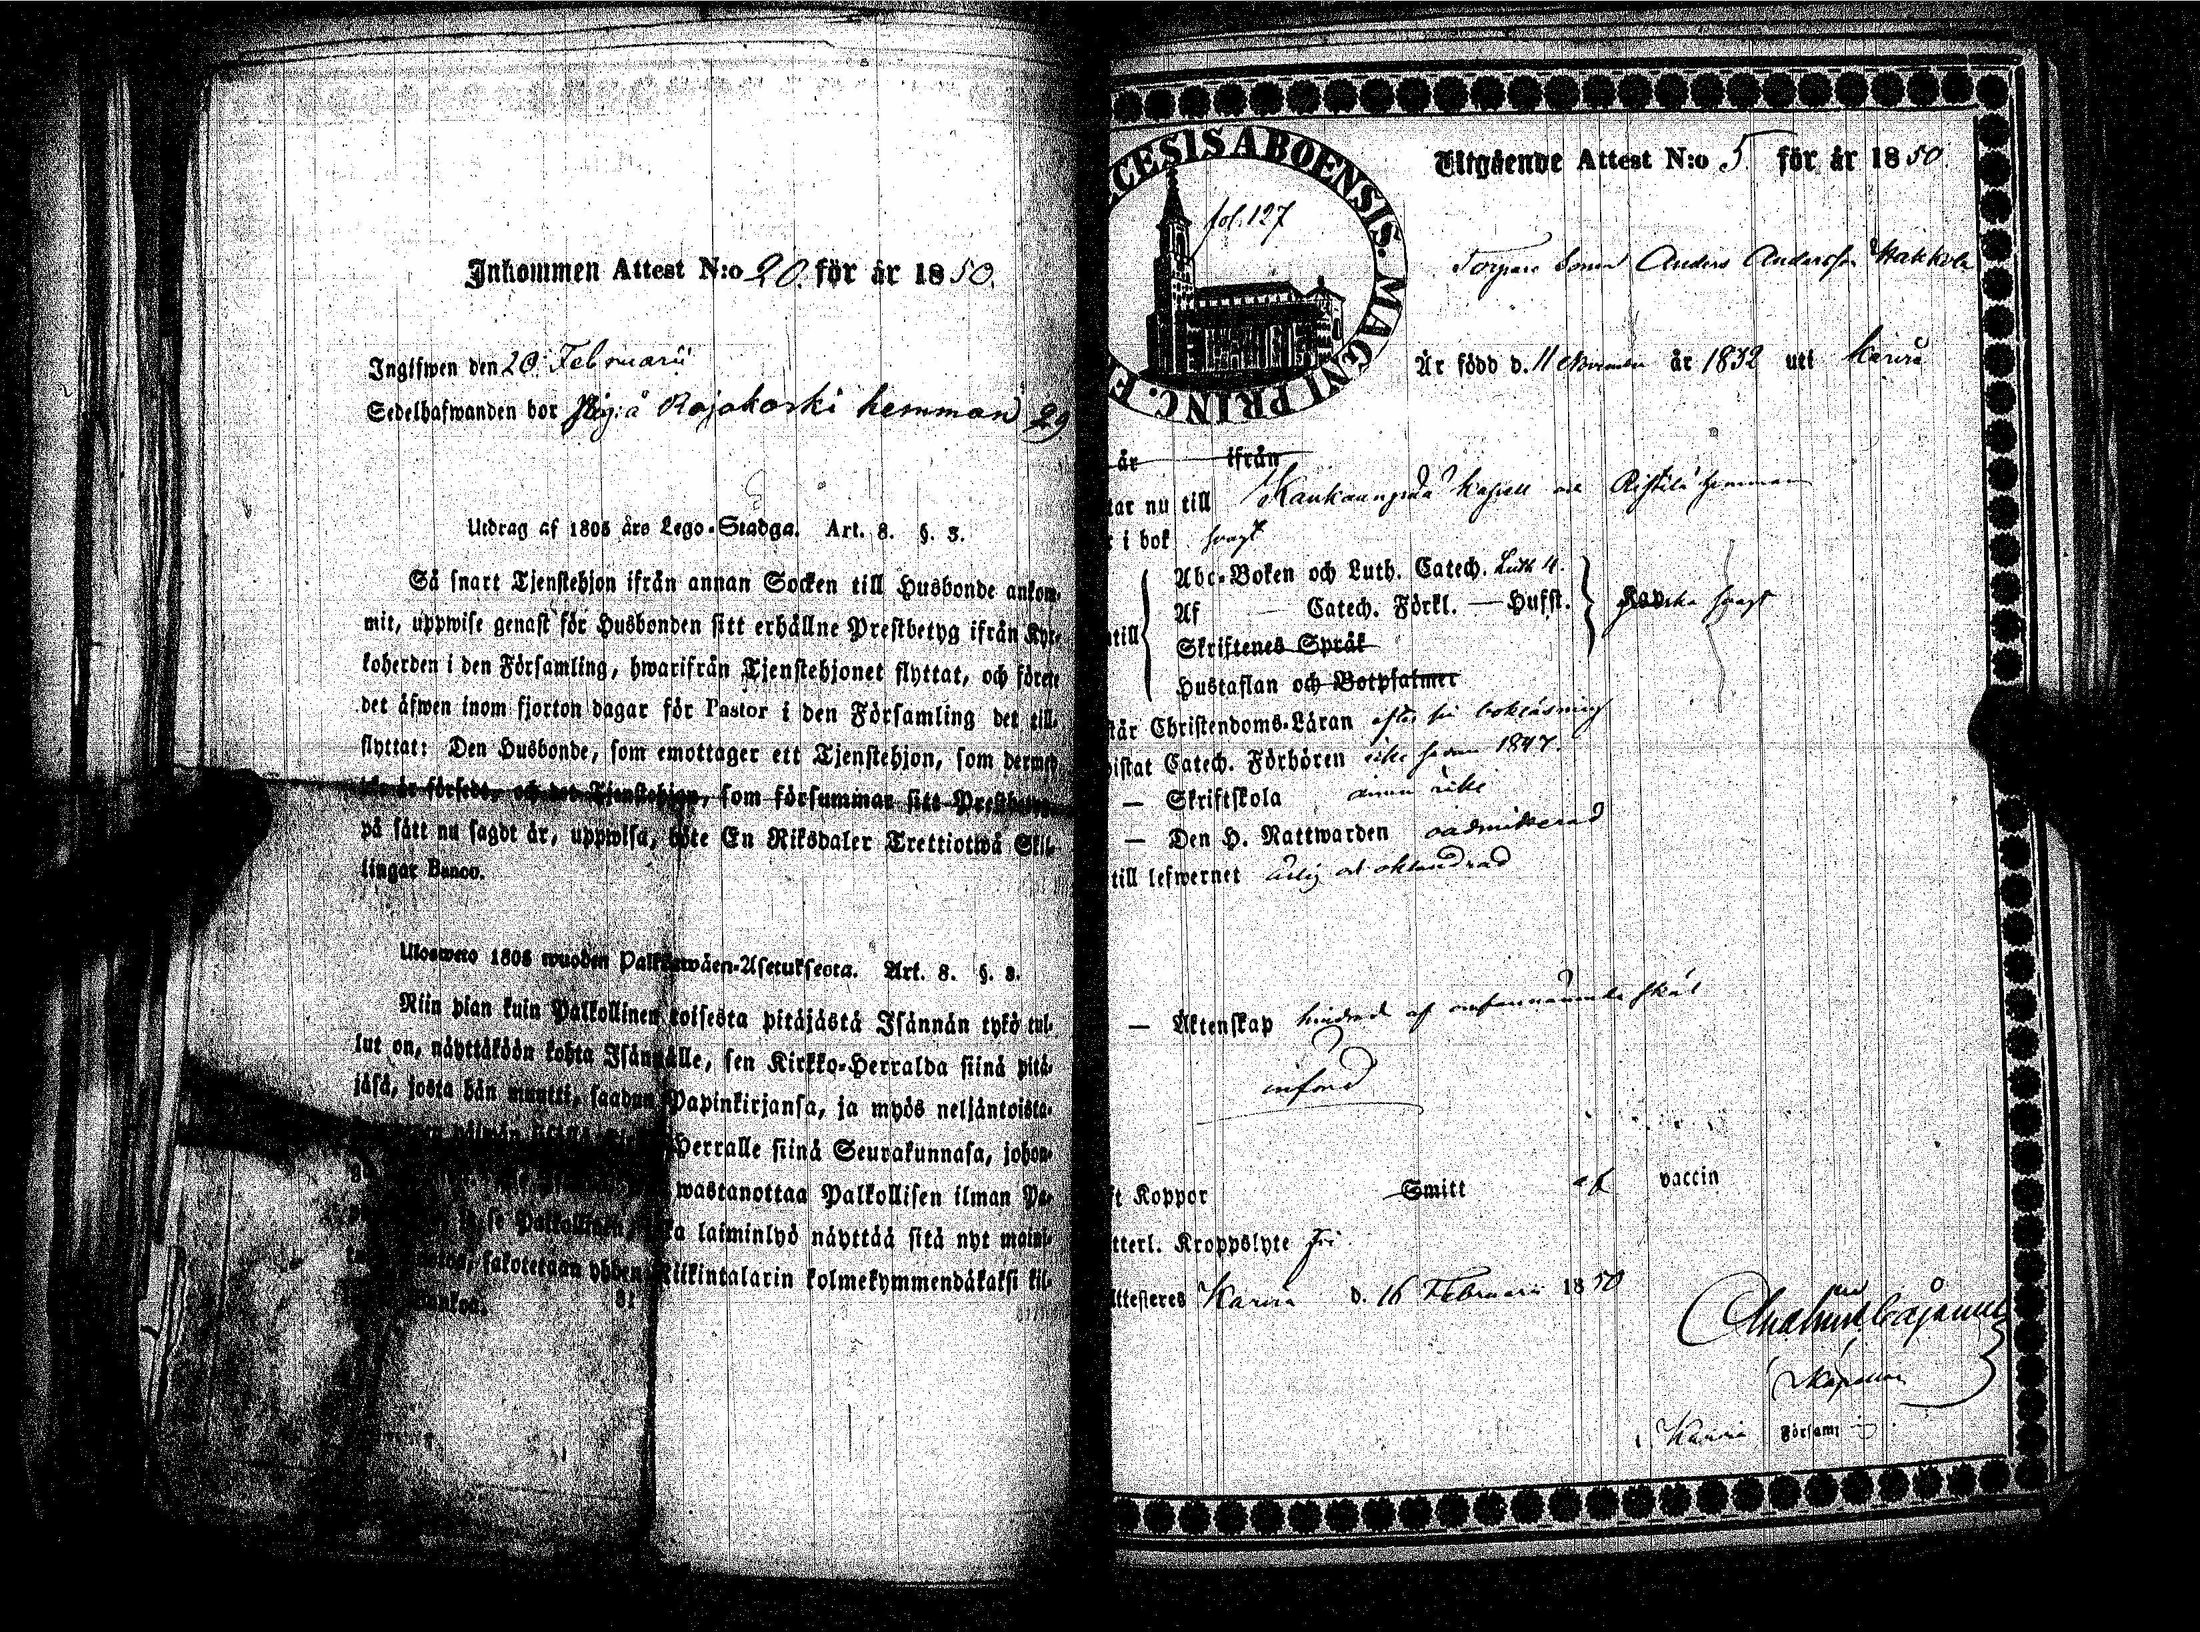 Inkommen Attest N:o 20. för år 1850.
Ingifwen den 20 Februarii
Sedelhafwanden bor å Rajakoski hemman 29
Utdrag af 1805 års Lego-Stadga. Art. 8. §. 3.
Så snart Tjenstehjon ifrån annan Socken till Husbonde ankom-
mit, uppwise genast för Husbonden sitt erhållne Prestbetyg ifrån Kyr-
koherden i den Församling, hwarifrån Tjenstehjonet flyttat, och förete
det äfwen inom fjorton dagar för Pastor i den Församling det till-
flyttat: Den Husbonde, som emottager ett Tjenstehjon, som dermed
icke är försedt, och det Tjenstehjon, som försummar sitt Prestbetyg
på sätt nu sagdt är, uppwisa, böte En Riksdaler Trettiotwå Skil-
lingar Banco.
Ulosweto 1805 wuoden Palkkawäen-Asetuksesta. Art. 8. §. 3.
Niin pian kuin Palkollinen toisesta pitäjästä Isännän tykö tul-
lut on, näyttäköön kohta Isännälle, sen Kirkko-Herralda siinä pitä-
jäsä, josta hän muutti, saadun Papinkirjansa, ja myös neljäntoista-
Herralle siinä Seurakunnasa, johon-
wastanottaa Palkollisen ilman Pa-
se Palkollinen, joka laiminlyö näyttää sitä nyt maini-
sakotetaan yhden Riikintalarin kolmekymmendäkaksi kil-
DIOECESIS ABOENSIS. MAGNI PRINC. F
fol. 127
Utgående Attest N:o 5 för år 1850.
Torpare Sonen Anders Andersson Hakkola
Är född d. 11 år 1832 uti Karvia
är ifrån
tar nu till Kankaanpää Kapell och Ristilä hemman
i bok svagt
till
Abc-Boken och Luth. Catech. Luth 4.
Af — Catech. Förkl. — Husst.
Skriftenes Språk
Hustaflan och Botpsalmer
svagt
står Christendoms-Läran efter sin bokläsning
bistat Catech. Förhören icke sedan 1847.
— Skriftskola ännu icke
— Den H. Nattwarden oadmitterad
till lefwernet ärlig och oklandrad
— Äktenskap hindrad af ofvannämnde skäl
införd
ft Koppor Smitt af vaccin
tterl. Kroppslyte fri
Attesteres Karvia d. 16 Februarii 1850
Cajanus
Kapellan
i Karvia Församl